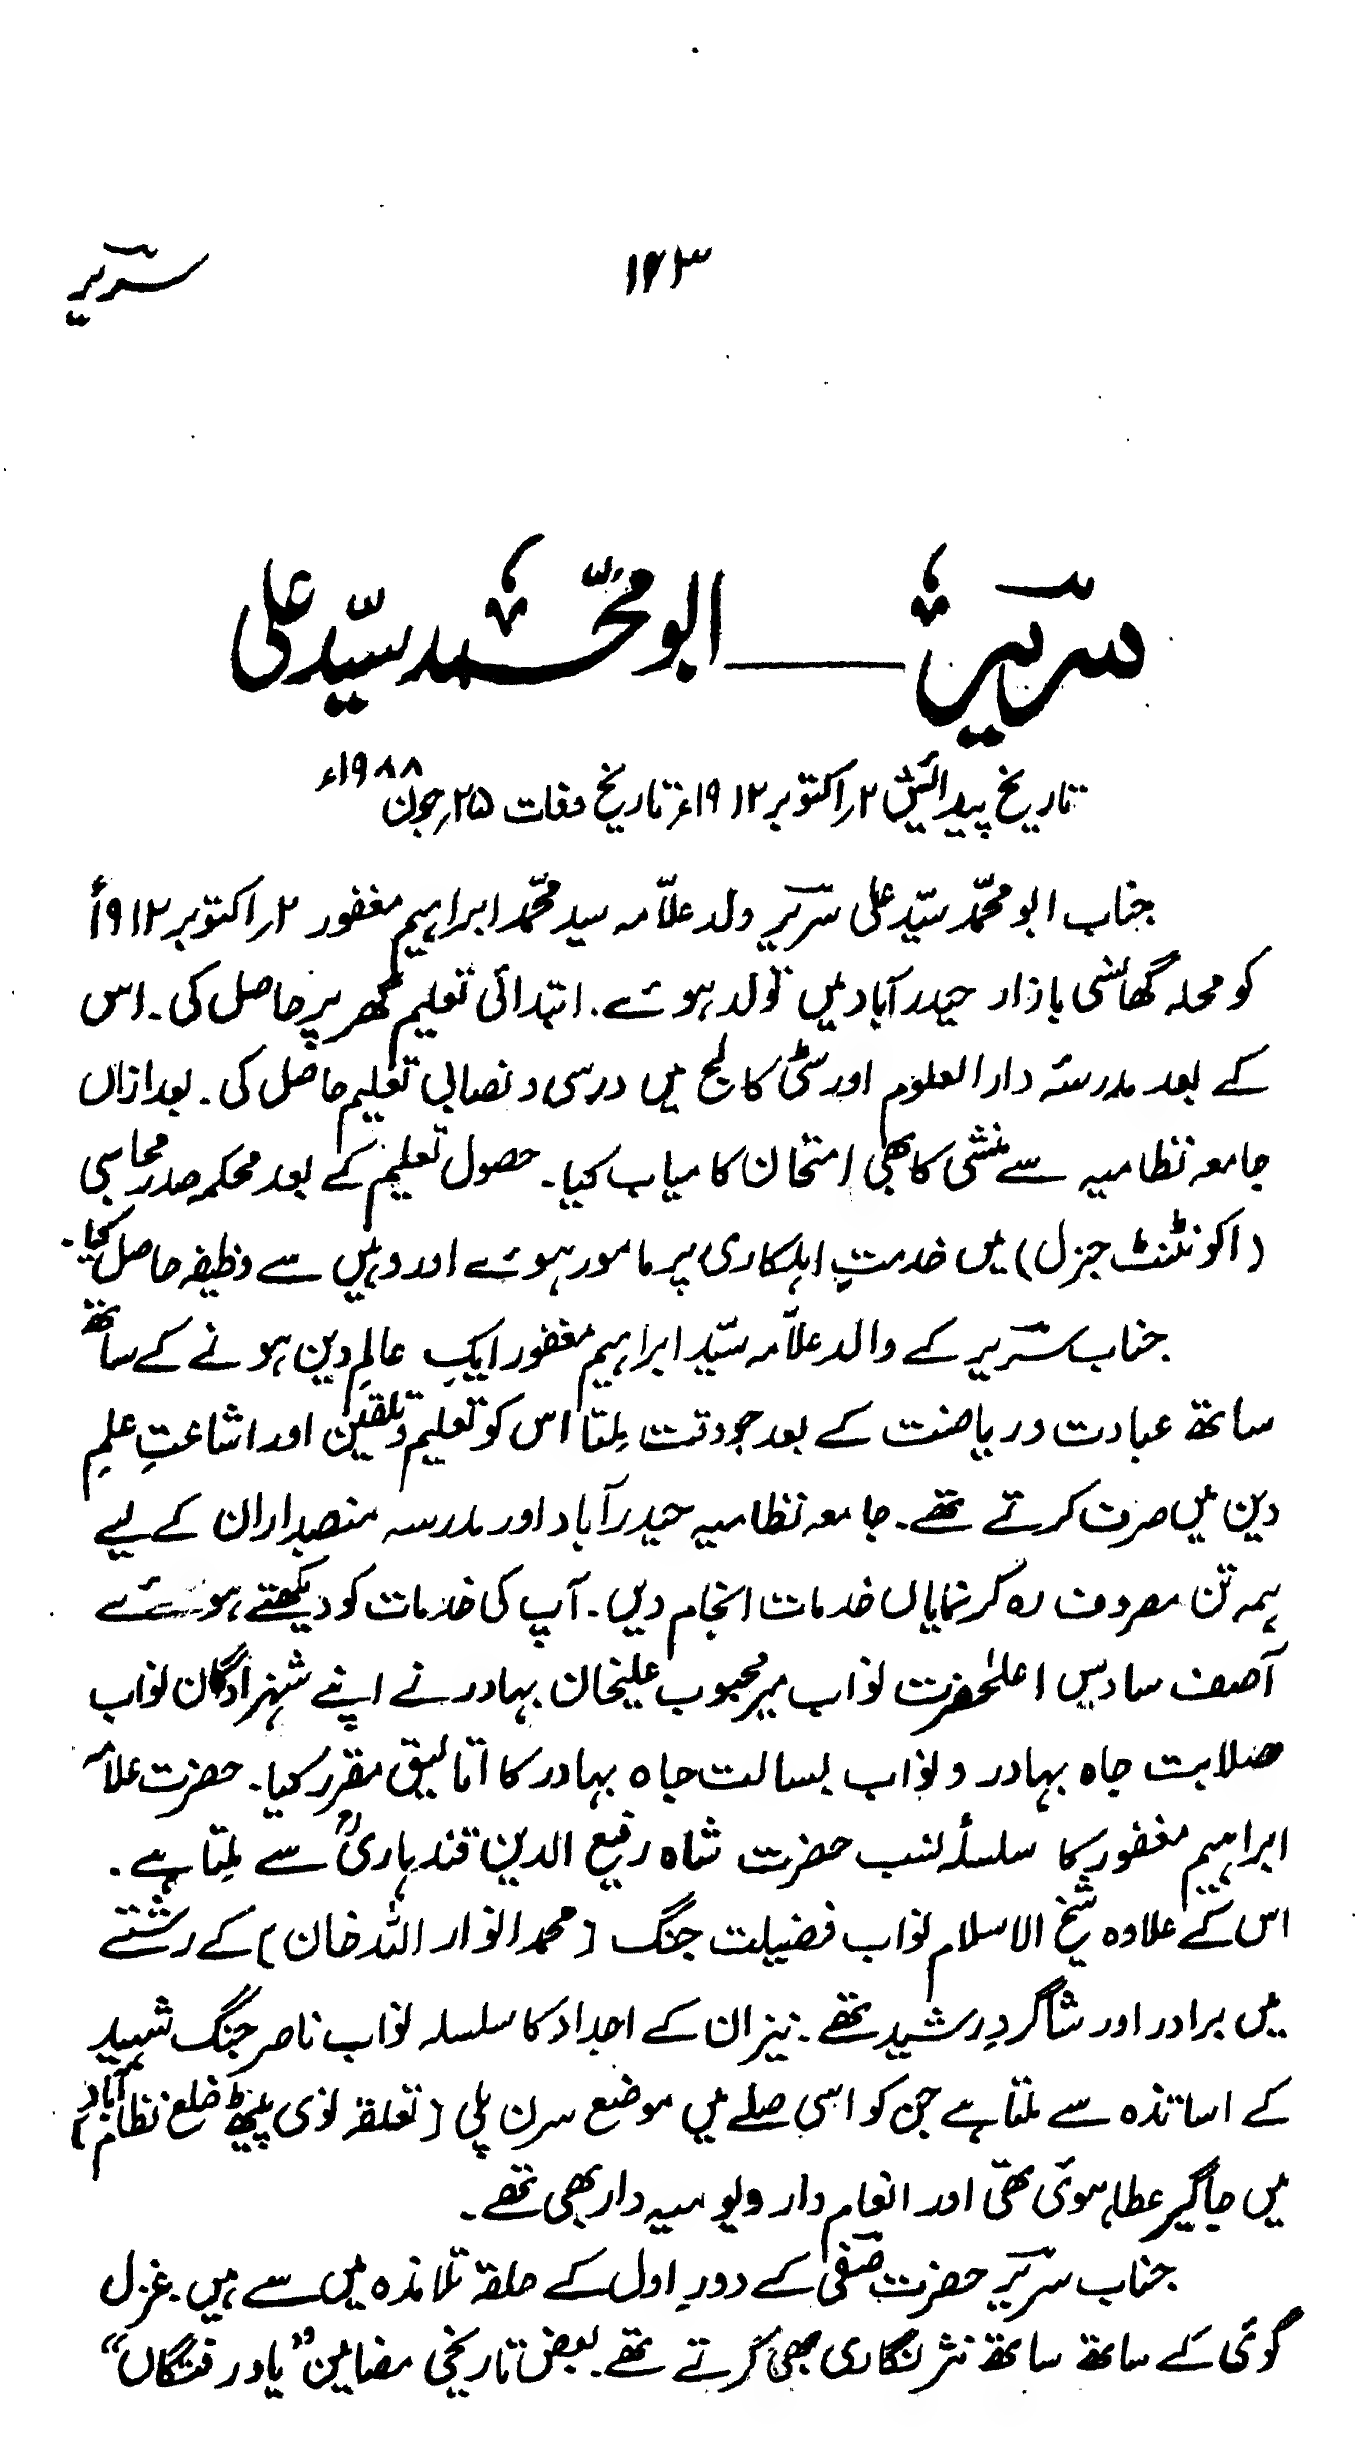 سریر
۱۶۳
سریر ـــــ ابو محمّد سیّد علی
تاریخ پیدائش ۲؍اکتوبر ۱۹۱۲ء تاریخ وفات ۲۵؍جون ۱۹۸۸ء
جناب ابو محمّد سیّد علی سریر ولد علاّمہ سید محمّد ابراہیم مغفور ۲؍اکتوبر ۱۹۱۲ء
کو محلہ گھانسی بازار حیدرآباد میں تولد ہوئے۔ ابتدائی تعلیم گھر پر حاصل کی۔ اس
کے بعد مدرسۂ دارالعلوم اور سٹی کالج میں درسی و نصابی تعلیم حاصل کی۔ بعد ازاں
جامعہ نظامیہ سے منشی کا بھی امتحان کامیاب کیا۔ حصول تعلیم کے بعد محکمہ صدر محاسبی
(اکونٹنٹ جنرل) میں خدمتِ اہلکاری پر مامور ہوئے اور وہیں سے وظیفہ حاصل کیا۔
جناب سریر کے والد علاّمہ سیّد ابراہیم مغفور ایک عالمِ دین ہونے کے ساتھ
ساتھ عبادت و ریاضت کے بعد جو وقت مِلتا اس کو تعلیم و تلقین اور اشاعتِ علمِ
دین میں صرف کرتے تھے۔ جامعہ نظامیہ حیدرآباد اور مدرسہ منصبداران کے لیے
ہمہ تن مصروف رہ کر نمایاں خدمات انجام دیں۔ آپ کی خدمات کو دیکھتے ہوئے
آصف سادس اعلٰحضرت نواب میر محبوب علیخان بہادر نے اپنے شہزادگان نواب
صلابت جاہ بہادر و نواب بسالت جاہ بہادر کا اتالیق مقرر کیا۔ حضرت علامہ
ابراہیم مغفور کا سلسلۂ نسب حضرت شاہ رفیع الدین قندہاریؒ سے مِلتا ہے۔
اس کے علاوہ شیخ الاسلام نواب فضیلت جنگ [محمد انوار اللہ خان] کے رشتے
میں برادر اور شاگردِ رشید تھے۔ نیز ان کے اجداد کا سلسلہ نواب ناصر جنگ شہید
کے اساتذہ سے ملتا ہے جن کو اسی صلے میں موضع سرن پلی [تعلقہ لوزی پیٹھ ضلع نظام آباد]
میں جاگیر عطا ہوئی تھی اور انعام دار و یومیہ دار بھی تھے۔
جناب سریر حضرت صفی کے دورِ اول کے حلقۂ تلامذہ میں سے ہیں۔ غزل
گوئی کے ساتھ ساتھ نثر نگاری بھی کرتے تھے۔ بعض تاریخی مضامین "یادِ رفتگاں"